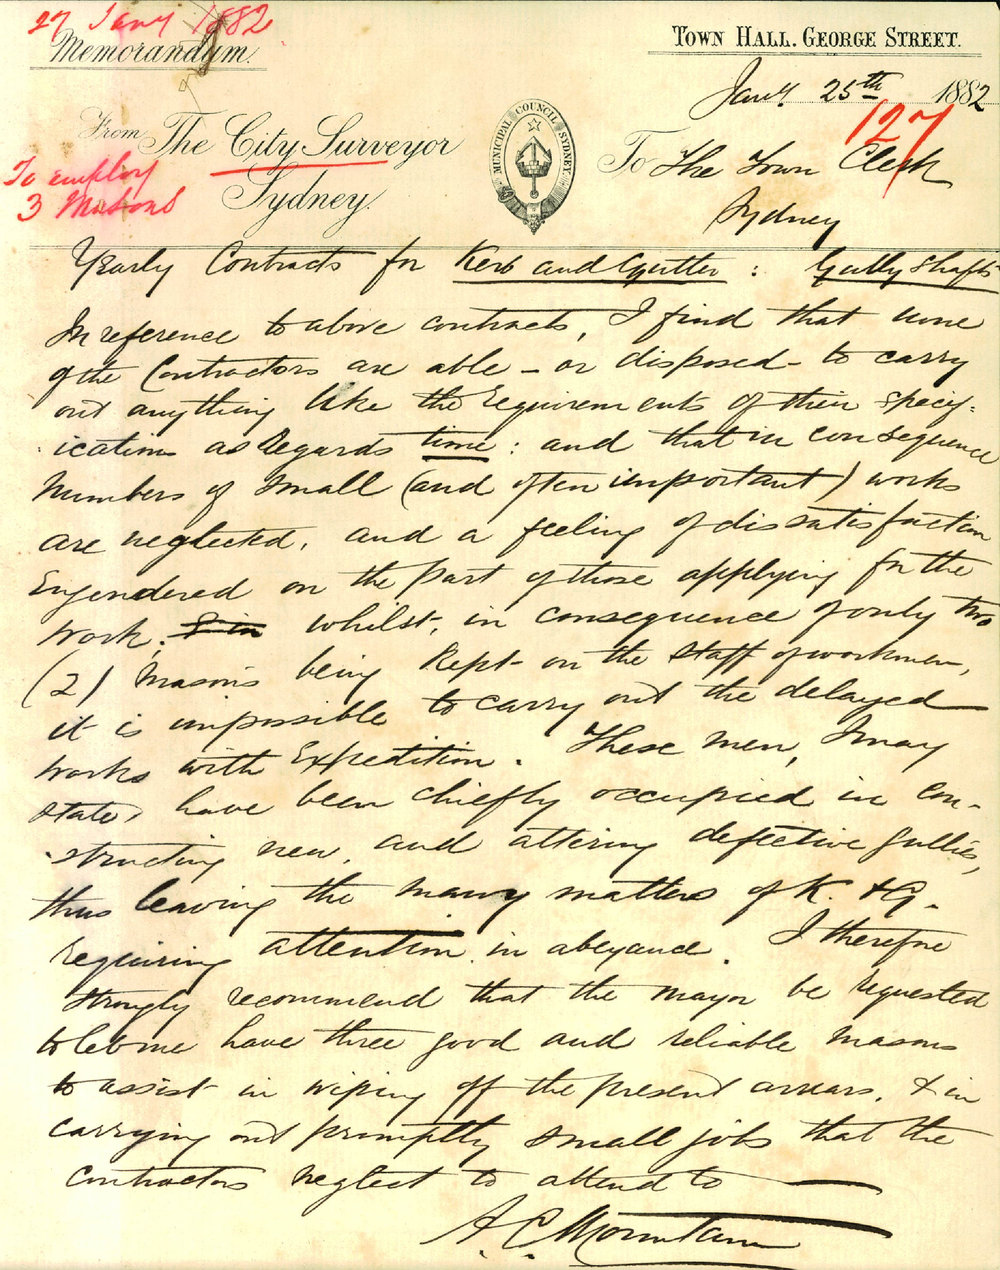 27 Jany 1882
Memorandum.
TOWN HALL. GEORGE STREET.
Jany. 25th 1882
127
From The City Surveyor
Sydney.
MUNICIPAL COUNCIL SYDNEY
To The Town Clerk
Sydney
To employ
3 Masons
Yearly Contracts for Kerb and Gutter : Gully Shafts
In reference to above contracts, I find that none
of the Contractors are able – or disposed – to carry
out anything like the requirements of their specif-
ication as regards time : and that in consequence
numbers of small (and often important) works
are neglected, and a feeling of dissatisfaction
Engendered on the part of those applying for the
work; whilst, in consequence of only two
(2) Masons being kept on the staff of workmen,
it is impossible to carry out the delayed
works with Expedition. These men, I may
state, have been chiefly occupied in con-
structing new, and altering defective gullies,
thus leaving the many matters of K. & G.
requiring attention in abeyance. I therefore
strongly recommend that the Mayor be requested
to let me have three good and reliable masons
to assist in wiping off the present arrears, & in
carrying out promptly small jobs that the
contractors neglect to attend to
A. C. Mountain